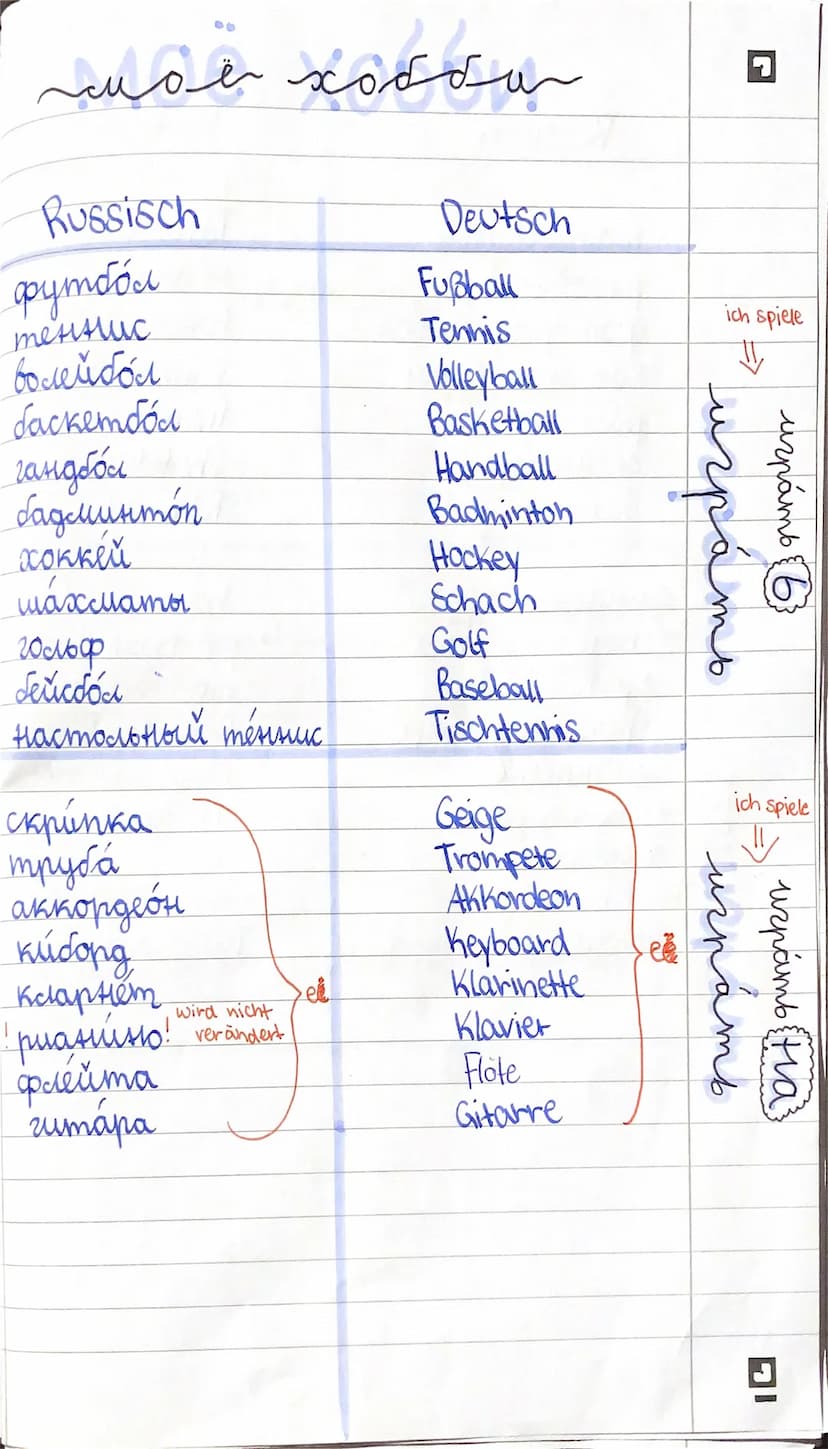 моё хобби
Russisch Deutsch
футбо́л Fußball
теннис Tennis
волейбо́л Volleyball
баскетбо́л Basketball
гандбо́л Handball
бадминто́п Badminton
хокке́й Hockey
ша́хматы Schach
гольф Golf
бейсбо́л Baseball
настольный те́ннис Tischtennis
ich spiele
игра́ть в
игра́ть
скри́пка Geige
труба́ Trompete
аккордео́н Akkordeon
ки́борд Keyboard
кларне́т Klarinette
! риани́но! wird nicht verändert Klavier
фле́йта Flöte
гита́ра Gitarre
ich spiele
игра́ть на
игра́ть